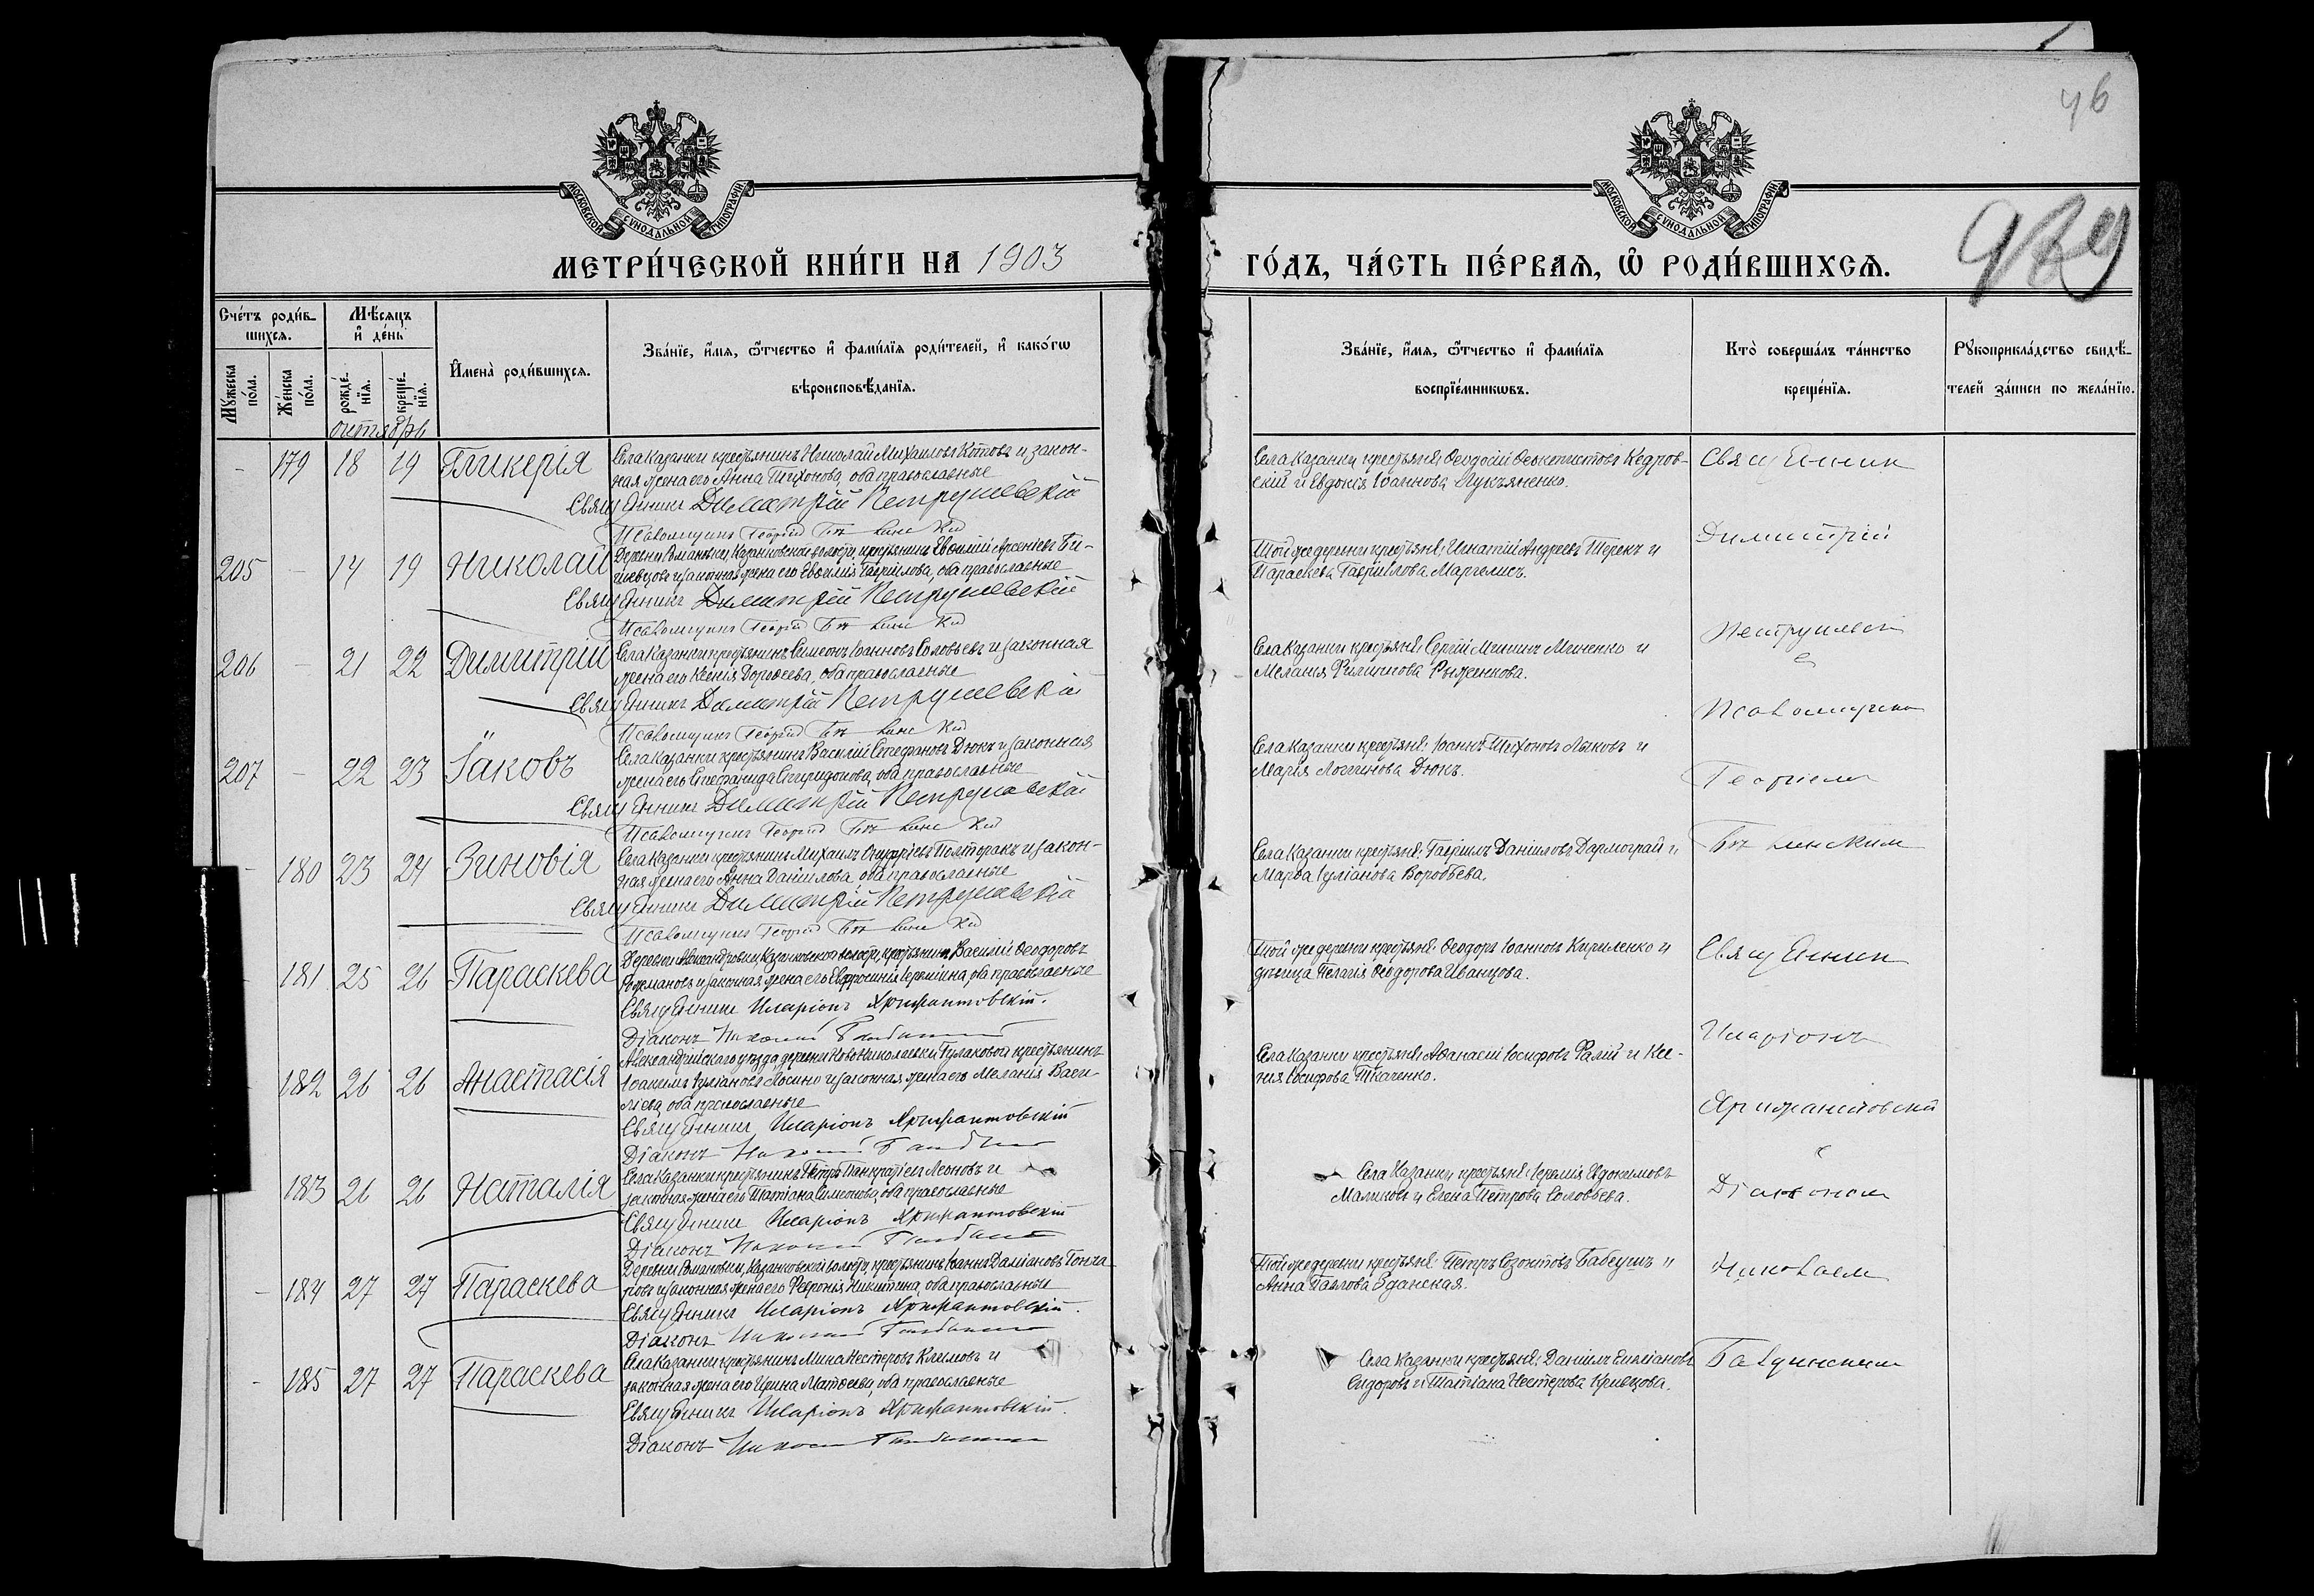 46
МОСКОВСКОЙ СѴНОДАЛЬНОЙ ТИПОГРАФІИ
МОСКОВСКОЙ СѴНОДАЛЬНОЙ ТИПОГРАФІИ
МЕТРИ́ЧЕСКОЙ КНИ́ГИ НА 1903
ГО́ДЪ, ЧА́СТЬ ПЕ́РВАѦ, Ѿ РОДИ́ВШИХСѦ.
Сче́тъ роди́в-
шихсѧ.
Мꙋжеска по́ла.
Же́нска по́ла.
Мѣ́сѧцъ и де́нь
рожде́-
нїѧ.
креще́-
нїѧ.
октябрь
Имена̀ роди́вшихсѧ.
Зва́нїе, и́мѧ, ѻ҆́тчество и҆ фами́лїѧ роди́телей, и҆ како́гѡ
вѣроисповѣ́данїѧ.
Зва́нїе, и́мѧ, ѻ҆́тчество и҆ фами́лїѧ
воспрїе́мникѡвъ.
Кто̀ соверша́лъ та́инство
креще́нїѧ.
Рꙋкоприкла́дство свидѣ́-
телей за́писи по жела́нїю.
- 179 18 19 Гликерія
Села Казанки крестьянинъ Николай Михаиловъ Котовъ и закон-
ная жена его Анна Тихонова, оба православные
Священникъ Димитрій Петрушевскій
Псаломщикъ Георгій
Села Казанки крестьяне: Ѳеодосій Ѳеоктистовъ Кедров-
скій и Евдокія Іоаннова Лукьяненко.
Священник
205 - 14 19 Николай
Деревни Романовки, Казанковской волости, крестьянинъ Евѳимій Арсеніевъ Би-
и законная жена его Евѳимія Гавріилова, оба православные
Священникъ Димитрій Петрушевскій
Псаломщикъ Георгій
Той же деревни крестьяне: Игнатій Андреевъ Терекъ и
Параскева Гавріилова Маргелисъ.
Димитрій
206 - 21 22 Димитрій
Села Казанки крестьянинъ Симеонъ Іоанновъ Соловьевъ и законная
жена его Ксенія Дороѳеева, оба православные
Священникъ Димитрій Петрушевскій
Псаломщикъ Георгій
Села Казанки крестьяне: Сергій Мининъ Миненко и
Меланія Филиппова Рыженкова.
Петрушевскій
с
Псаломщикомъ
207 - 22 23 Іаковъ
Села Казанки крестьянинъ Василій Стефановъ Дюкъ и законная
жена его Стефанида Спиридонова, оба православные
Священникъ Димитрій Петрушевскій
Псаломщикъ Георгій
Села Казанки крестьяне: Іоаннъ Тихоновъ Лыковъ и
Марія Логгинова Дюкъ.
Георгіемъ
- 180 23 24 Зиновія
Села Казанки крестьянинъ Михаилъ Онуфріевъ Полторакъ и закон-
ная жена его Анна Даніилова, оба православные
Священникъ Димитрій Петрушевскій
Псаломщикъ Георгій
Села Казанки крестьяне: Гавріилъ Даніиловъ Дармограй и
Марѳа Іуліанова Воробьева.
- 181 25 26 Параскева
Деревни Александровки, Казанковской волости, крестьянинъ Василій Ѳеодоровъ
Рожмановъ и законная жена его Евфросинія Іереміина, оба православные
Священникъ Иларіонъ
Діаконъ Николай
Той же деревни крестьяне: Ѳеодоръ Іоанновъ Кириленко и
дѣвица Пелагія Ѳеодорова Иванцова.
Священник
Иларіонъ
- 182 26 26 Анастасія
Александрійскаго уѣзда, деревни Новониколаевки, Гулаковой крестьянинъ
Іоакимъ Іуліановъ Лосино и законная жена его Меланія Васи-
ліева, оба православные
Священникъ Иларіонъ
Діаконъ
Села Казанки крестьяне: Аѳанасій Іосифовъ Фалій и Ксе-
нія Іосифова Ткаченко.
с
183 26 26 Наталія
Села Казанки крестьянинъ Петръ Панкратіевъ Леоновъ и
законная жена его Татіана Симеонова, оба православные
Священникъ Иларіонъ
Діаконъ
Села Казанки крестьяне: Іеремія Евдокимовъ
Маликовъ и Елена Петрова Соловьева.
Діакономъ
- 184 27 27 Параскева
Деревни Романовки, Казанковской волости, крестьянинъ Іоаннъ Даміановъ Гонча-
ровъ и законная жена его Февронія Никитина, оба православные
Священникъ Иларіонъ
Діаконъ
Той же деревни крестьяне: Петръ Созонтовъ Бабеушъ и
Анна Павлова Зданская.
Николаемъ
- 185 27 27 Параскева
Села Казанки крестьянинъ Мина Нестеровъ Климовъ и
законная жена его Ирина Матѳеева, оба православные
Священникъ Иларіонъ
Діаконъ
Села Казанки крестьяне: Даніилъ Емиліановъ
Сидоровъ и Татіана Нестерова Кривцова.